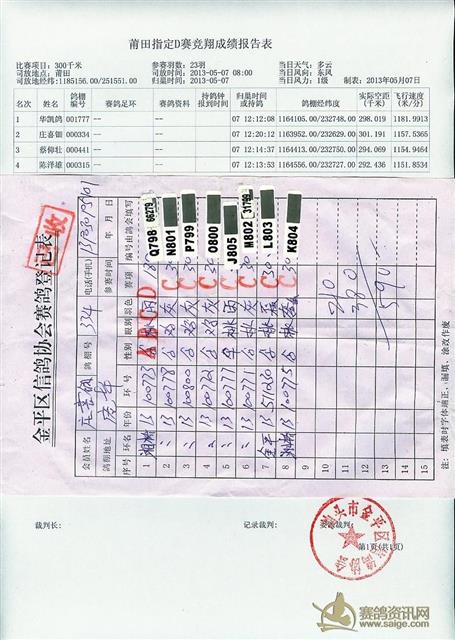 莆田指定D赛竞翔成绩报告表
比赛项目:300千米 参赛羽数:23羽 当日天气:多云
司放地点:莆田 司放时间:2013-05-07 08:00 当日风向:东风
司放地经纬:1185156.00/251551.00 归巢时间:2013-05-07 当日风力:1级 制表:2013年05月07日
名次 姓名 鸽棚编号 赛鸽足环 赛鸽资料 持鸽钟报到时间 归巢时间或持鸽 鸽棚经纬度 实际空距(千米) 飞行速度(米/分)
1 华凯鸽 001777 07 12:12:08 1164105.00/232748.00 298.019 1181.9913
2 庄喜钿 000334 07 12:20:12 1163952.00/232629.00 301.191 1157.5365
3 蔡仰壮 000441 07 12:14:37 1164109.00/232732.00 294.069 1154.9464
4 陈洋雄 000315 07 12:13:53 1164556.00/232727.00 292.436 1151.8534
金平区信鸽协会赛鸽登记表
收
会员姓名 鸽棚号 334 电话(手机)
鸽棚地址 参赛时间 年 月 日
序号 环名 年份 环号 性别 眼别 羽色 赛项 编号由鸽会填写
1 湘桥 13 100773 A B C D Q798 66279
2 13 100778 C 30 N801
3 13 100800 C 30 P799
4 13 100721 C 30 O800
5 13 100717 C 30 J805
6 13 100771 C 30 M802 31799
7 金平 13 511030 C 30 L803
8 13 100775 C 30 K804
9
10 210
11 380
12 590
13
14
15
注:填表时字体端正,漏填、涂改作废
裁判长: 记录裁判: 裁判:
第1页(共1页)
汕头市金平区信鸽协会
赛鸽资讯网
www.saige.com